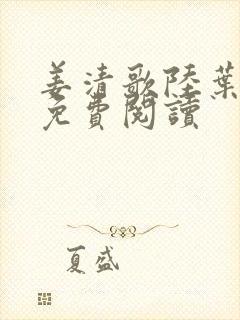 姜清歌陸葉
免費閱讀
夏盛